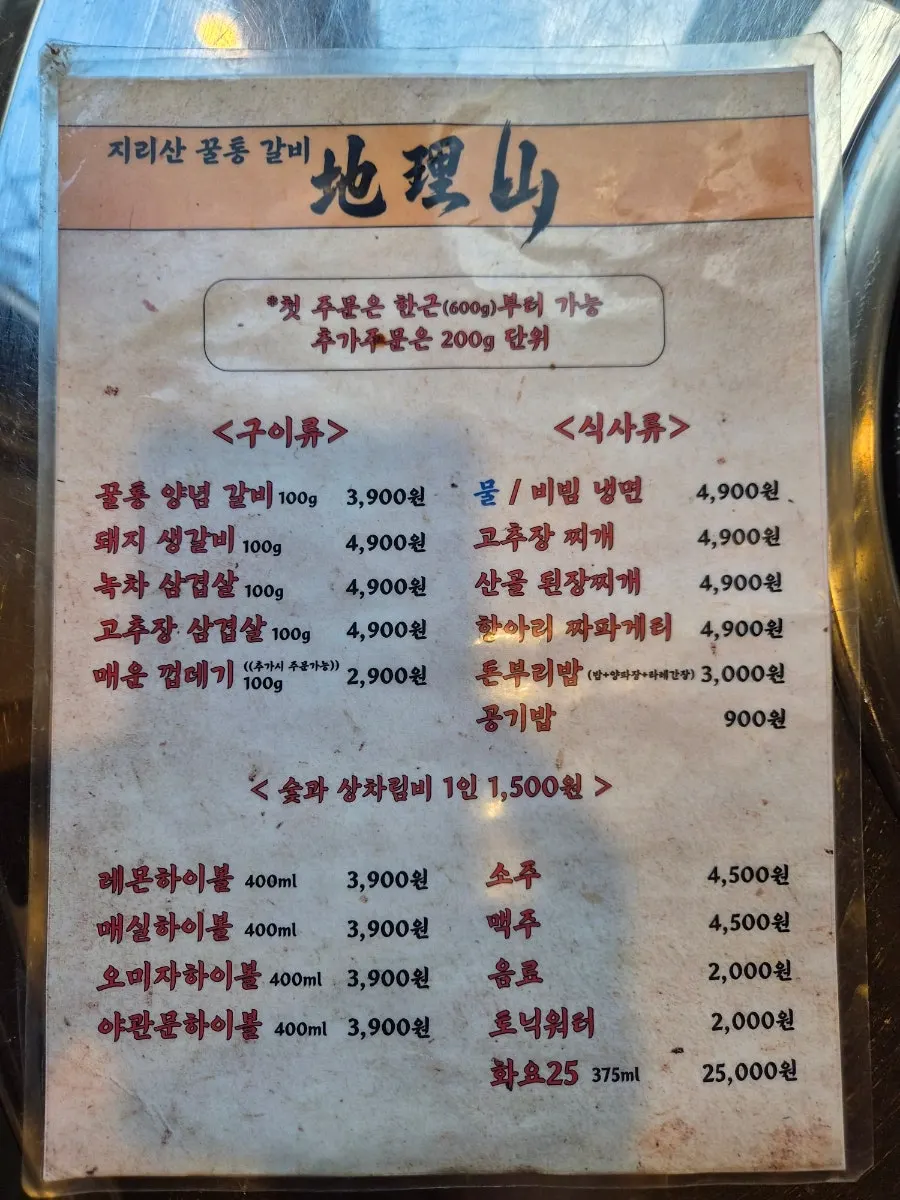 지리산 꿀통 갈비 地理山
*첫 주문은 한근(600g)부터 가능
추가주문은 200g 단위
<구이류>
꿀통 양념 갈비 100g 3,900원
돼지 생갈비 100g 4,900원
녹차 삼겹살 100g 4,900원
고추장 삼겹살 100g 4,900원
매운 껍데기 ((추가시 주문가능)) 100g 2,900원
<식사류>
물 / 비빔 냉면 4,900원
고추장 찌개 4,900원
산골 된장찌개 4,900원
항아리 짜파게티 4,900원
돈부리밥 (밥+양파장+타레간장) 3,000원
공기밥 900원
< 숯과 상차림비 1인 1,500원 >
레몬하이볼 400ml 3,900원
매실하이볼 400ml 3,900원
오미자하이볼 400ml 3,900원
야관문하이볼 400ml 3,900원
소주 4,500원
맥주 4,500원
음료 2,000원
토닉워터 2,000원
화요25 375ml 25,000원